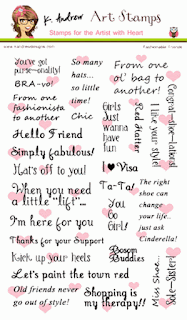 K. Andrew Art Stamps
Stamps for the Artist with Heart
You've got
purse-onality!
BRA-vo!
From one
fashionista
to another
So many
hats...
so little
time!
Chic
From one
ol' bag to
another!
Hello Friend
Simply fabulous!
Hat's off to you!
Girls
Just
Wanna
have
fun
Red Hatter
I like your style!
Congrat-shoe-lations!
When you need
a little "lift"...
I ♥ Visa
I'm here for you
Ta-Ta!
You
Go
Girl!
The right
shoe can
change
your life..
just ask
Cinderella!
Thanks for your Support
Kick up your heels
Bosom
Buddies
Let's paint the town red
Old friends never
go out of style!
Shopping is
my therapy!!
Miss Shoe...
Sole-Sister!